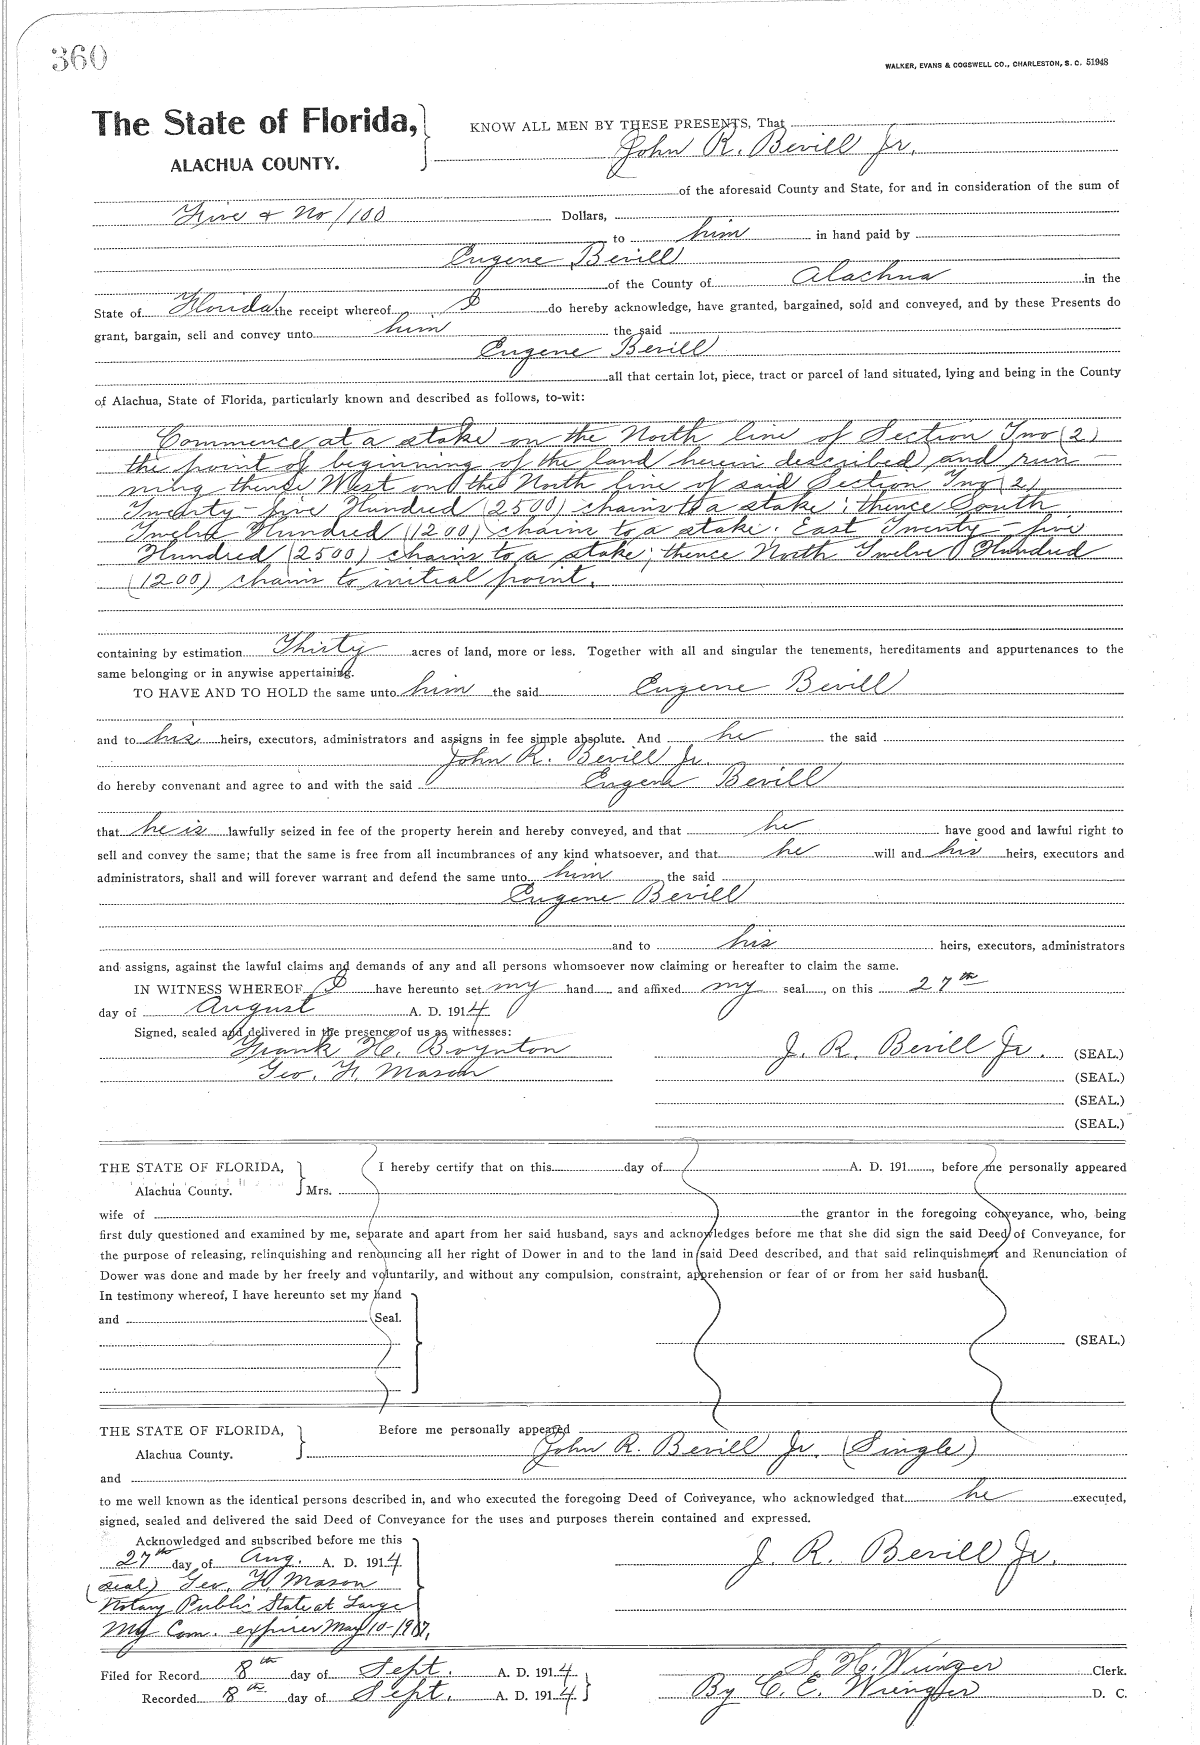 360
WALKER, EVANS & COGSWELL CO., CHARLESTON, S. C. 51948
The State of Florida,
ALACHUA COUNTY.
KNOW ALL MEN BY THESE PRESENTS, That
John R. Bevill Jr.
of the aforesaid County and State, for and in consideration of the sum of
Five & No/100 Dollars,
to him in hand paid by
Eugene Bevill
of the County of Alachua in the
State of Florida the receipt whereof I do hereby acknowledge, have granted, bargained, sold and conveyed, and by these Presents do
grant, bargain, sell and convey unto him the said
Eugene Bevill
all that certain lot, piece, tract or parcel of land situated, lying and being in the County
of Alachua, State of Florida, particularly known and described as follows, to-wit:
Commence at a stake on the North line of Section Two (2)
the point of beginning of the land herein described and run-
ning thence West on the North line of said Section Two (2)
Twenty-five Hundred (2500) chains to a stake; thence South
Twelve Hundred (1200) chains to a stake; East Twenty-five
Hundred (2500) chains to a stake; thence North Twelve Hundred
(1200) chains to initial point.
containing by estimation Thirty acres of land, more or less. Together with all and singular the tenements, hereditaments and appurtenances to the
same belonging or in anywise appertaining.
TO HAVE AND TO HOLD the same unto him the said Eugene Bevill
and to his heirs, executors, administrators and assigns in fee simple absolute. And he the said
John R. Bevill Jr.
do hereby convenant and agree to and with the said Eugene Bevill
that he is lawfully seized in fee of the property herein and hereby conveyed, and that he have good and lawful right to
sell and convey the same; that the same is free from all incumbrances of any kind whatsoever, and that he will and his heirs, executors and
administrators, shall and will forever warrant and defend the same unto him the said
Eugene Bevill
and to his heirs, executors, administrators
and assigns, against the lawful claims and demands of any and all persons whomsoever now claiming or hereafter to claim the same.
IN WITNESS WHEREOF I have hereunto set my hand and affixed my seal, on this 27th
day of August A. D. 1914
Signed, sealed and delivered in the presence of us as witnesses:
Frank H. Boynton J. R. Bevill Jr. (SEAL.)
Geo. H. Mason (SEAL.)
(SEAL.)
(SEAL.)
THE STATE OF FLORIDA,
Alachua County.
I hereby certify that on this day of A. D. 191 , before me personally appeared
Mrs.
wife of the grantor in the foregoing conveyance, who, being
first duly questioned and examined by me, separate and apart from her said husband, says and acknowledges before me that she did sign the said Deed of Conveyance, for
the purpose of releasing, relinquishing and renouncing all her right of Dower in and to the land in said Deed described, and that said relinquishment and Renunciation of
Dower was done and made by her freely and voluntarily, and without any compulsion, constraint, apprehension or fear of or from her said husband.
In testimony whereof, I have hereunto set my hand
and Seal.
(SEAL.)
THE STATE OF FLORIDA,
Alachua County.
Before me personally appeared
John R. Bevill Jr. (Single)
and
to me well known as the identical persons described in, and who executed the foregoing Deed of Conveyance, who acknowledged that he executed,
signed, sealed and delivered the said Deed of Conveyance for the uses and purposes therein contained and expressed.
Acknowledged and subscribed before me this
27th day of Aug. A. D. 1914 J. R. Bevill Jr.
(seal) Geo. H. Mason
Notary Public State at Large
My Com. expires May 10-1917.
Filed for Record 8th day of Sept. A. D. 1914 S. H. Wienges Clerk.
Recorded 8th day of Sept. A. D. 1914 By C. E. Wienges D. C.